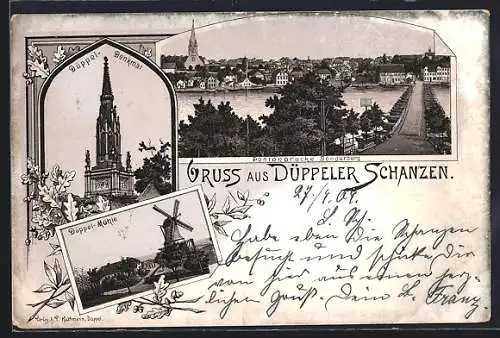 Düppel-Denkmal
Pontonbrücke Sonderburg
GRUSS AUS DÜPPELER SCHANZEN.
27/4.01.
Habe eben die Schanzen
besucht und schicke Dir
von hier aus einen herz-
lichen Gruß. Dein Franz.
Düppel-Mühle
Verlag Düppel.